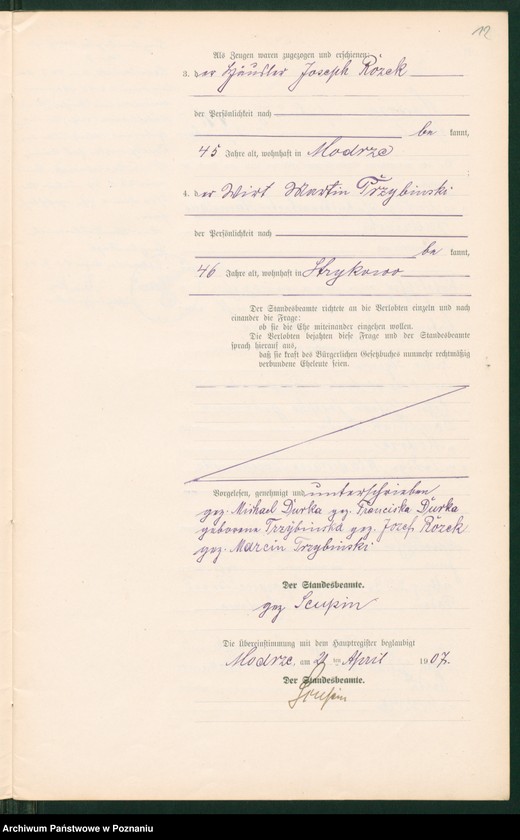 12
Als Zeugen waren zugezogen und erschienen:
3. der Häusler Joseph Rözek
der Persönlichkeit nach
be kannt,
45 Jahre alt, wohnhaft in Modrze
4. der Wirt Martin Trzybinski
der Persönlichkeit nach
be kannt,
46 Jahre alt, wohnhaft in Strykowo
Der Standesbeamte richtete an die Verlobten einzeln und nach
einander die Frage:
ob sie die Ehe miteinander eingehen wollen.
Die Verlobten bejahten diese Frage und der Standesbeamte
sprach hierauf aus,
daß sie kraft des Bürgerlichen Gesetzbuches nunmehr rechtmäßig
verbundene Eheleute seien.
Vorgelesen, genehmigt und unterschrieben
gez. Michael Durka gez. Franciska Durka
geborene Trzybinska gez. Jozef Rözek
gez. Marcin Trzybinski
Der Standesbeamte.
gez Scupin
Die Übereinstimmung mit dem Hauptregister beglaubigt
Modrze, am April 1907.
Der Standesbeamte.
Scupin
Archiwum Państwowe w Poznaniu